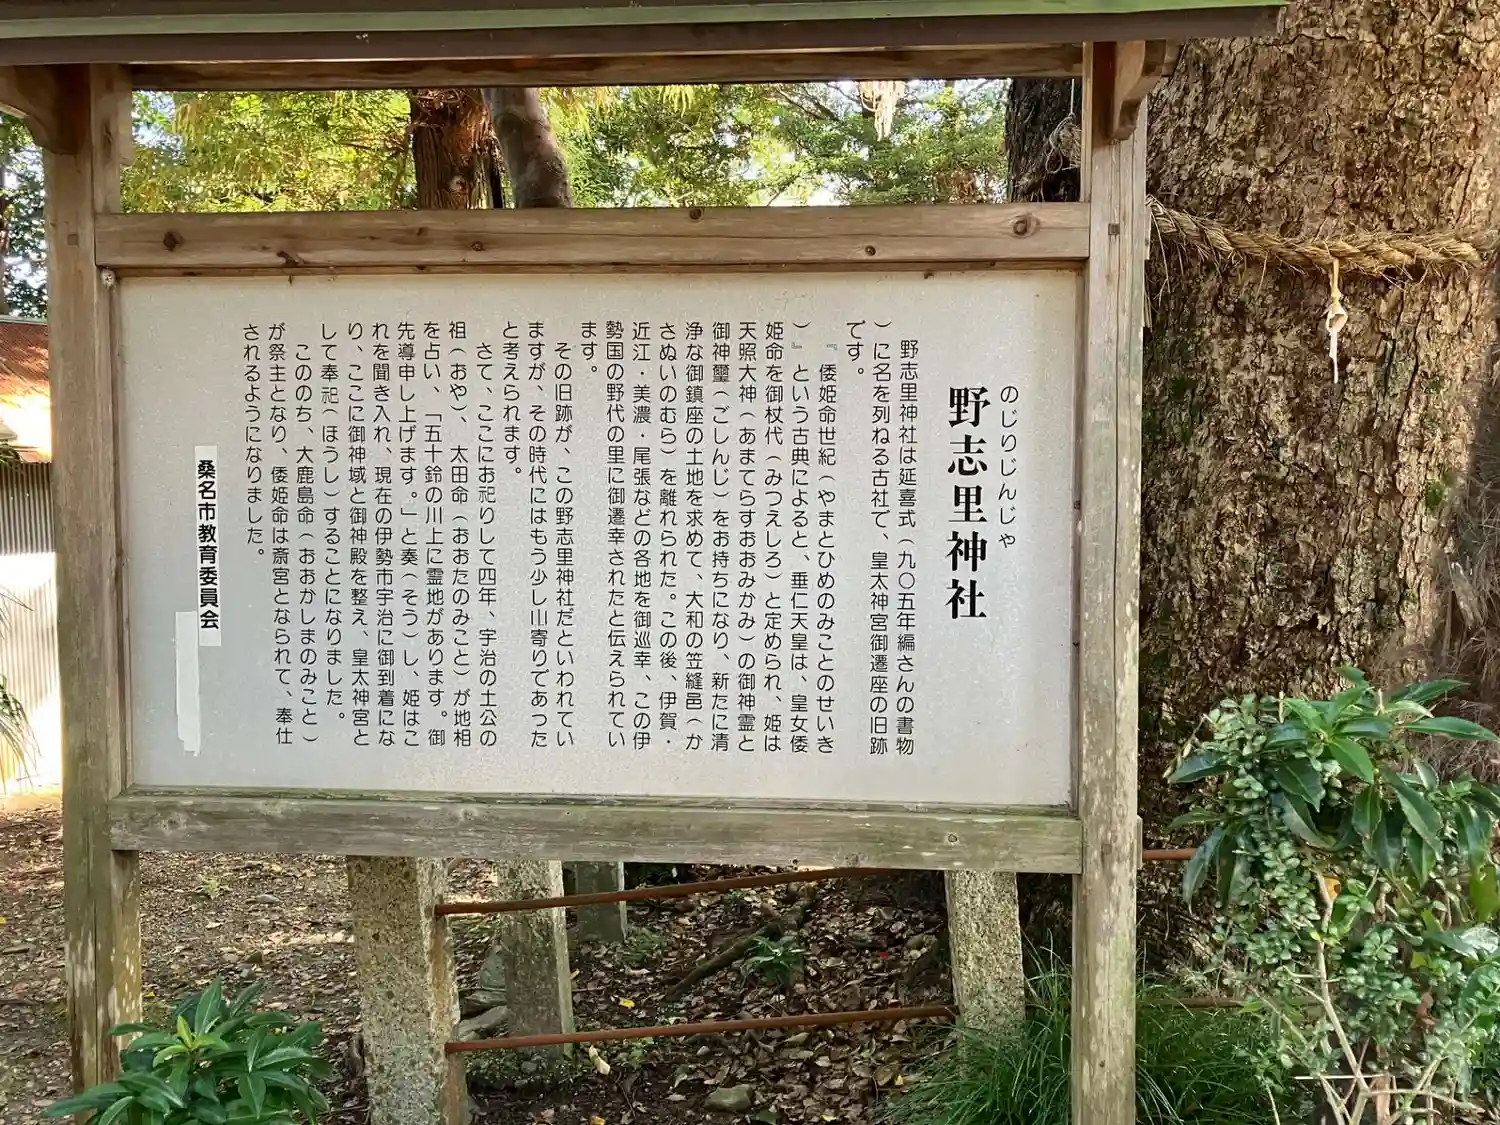 のじりじんじゃ
野志里神社
野志里神社は延喜式（九〇五年編さんの書物
）に名を列ねる古社で、皇太神宮御遷座の旧跡
です。
『倭姫命世紀（やまとひめのみことのせいき
）』という古典によると、垂仁天皇は、皇女倭
姫命を御杖代（みつえしろ）と定められ、姫は
天照大神（あまてらすおおみかみ）の御神霊と
御神璽（ごしんじ）をお持ちになり、新たに清
浄な御鎮座の土地を求めて、大和の笠縫邑（か
さぬいのむら）を離れられた。この後、伊賀・
近江・美濃・尾張などの各地を御巡幸、この伊
勢国の野代の里に御遷幸されたと伝えられてい
ます。
その旧跡が、この野志里神社だといわれてい
ますが、その時代にはもう少し山寄りであった
と考えられます。
さて、ここにお祀りして四年、宇治の土公の
祖（おや）、太田命（おおたのみこと）が地相
を占い、「五十鈴の川上に霊地があります。御
先導申し上げます。」と奏（そう）し、姫はこ
れを聞き入れ、現在の伊勢市宇治に御到着にな
り、ここに御神域と御神殿を整え、皇太神宮と
して奉祀（ほうし）することになりました。
こののち、大鹿島命（おおかしまのみこと）
が祭主となり、倭姫命は斎宮となられて、奉仕
されるようになりました。
桑名市教育委員会